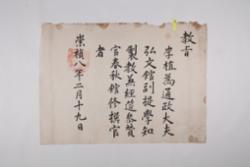 敎旨
李植爲通政大夫
弘文館副提學知
製敎兼經筵參贊
官春秋館修撰官
者
崇禎八年二月十九日